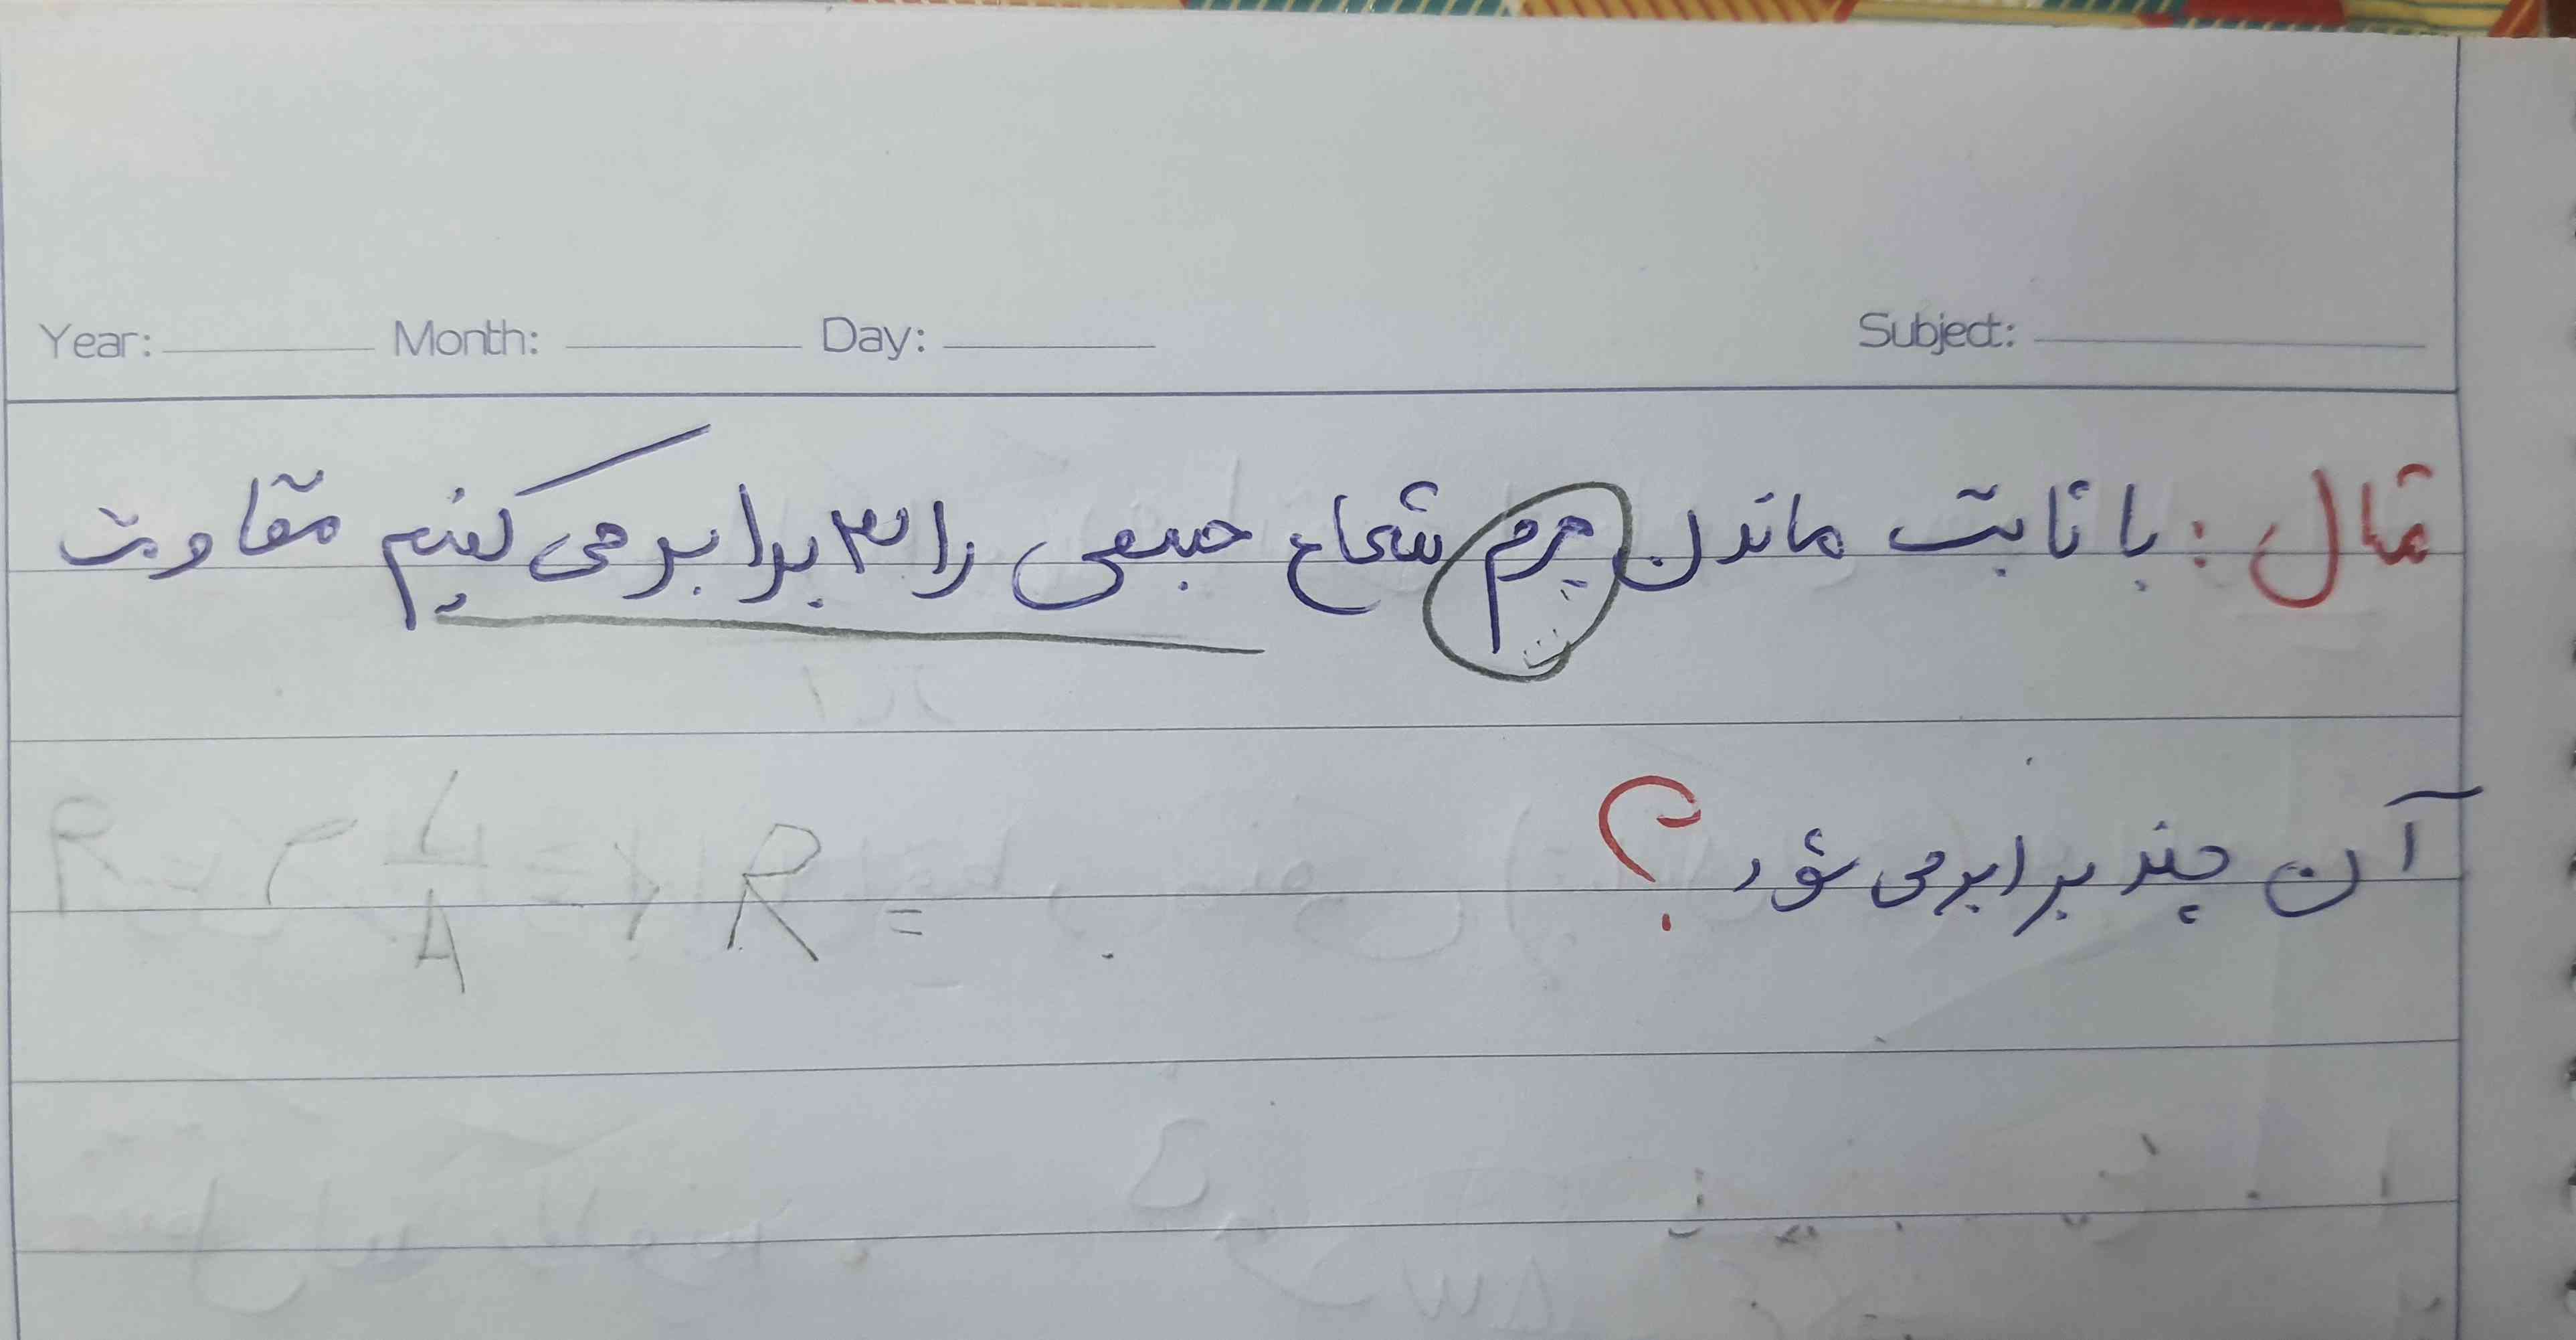 Year: Month: Day: Subject:
مثال : با ثابت ماندن جرم شعاع جسمی را ۳ برابر می کنیم مقاومت
آن چند برابر می شود ؟
R = ρ L/A =